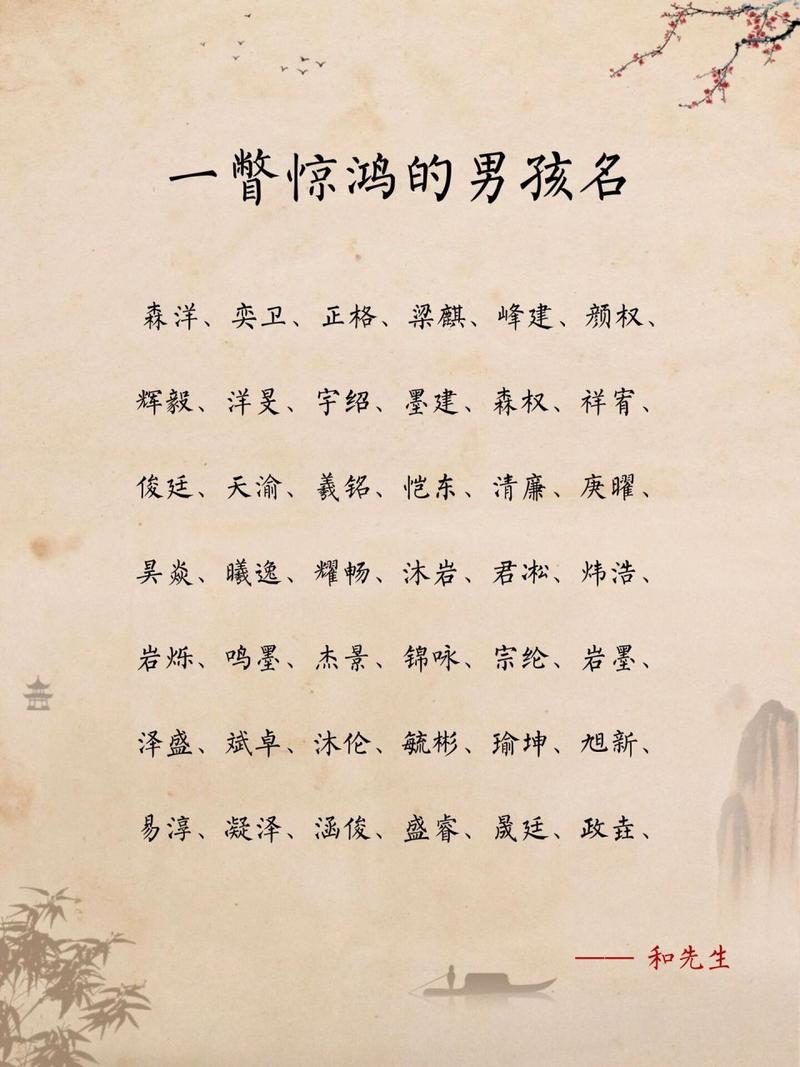 一瞥惊鸿的男孩名
森洋、奕卫、正格、梁麒、峰建、颜权、
辉毅、洋旻、宇绍、墨建、森权、祥宥、
俊廷、天渝、羲铭、恺东、清廉、庚曜、
昊焱、曦逸、耀畅、沐岩、君凇、炜浩、
岩烁、鸣墨、杰景、锦咏、宗纶、岩墨、
泽盛、斌卓、沐伦、毓彬、瑜坤、旭新、
易淳、凝泽、涵俊、盛睿、晟廷、政垚、
—— 和先生